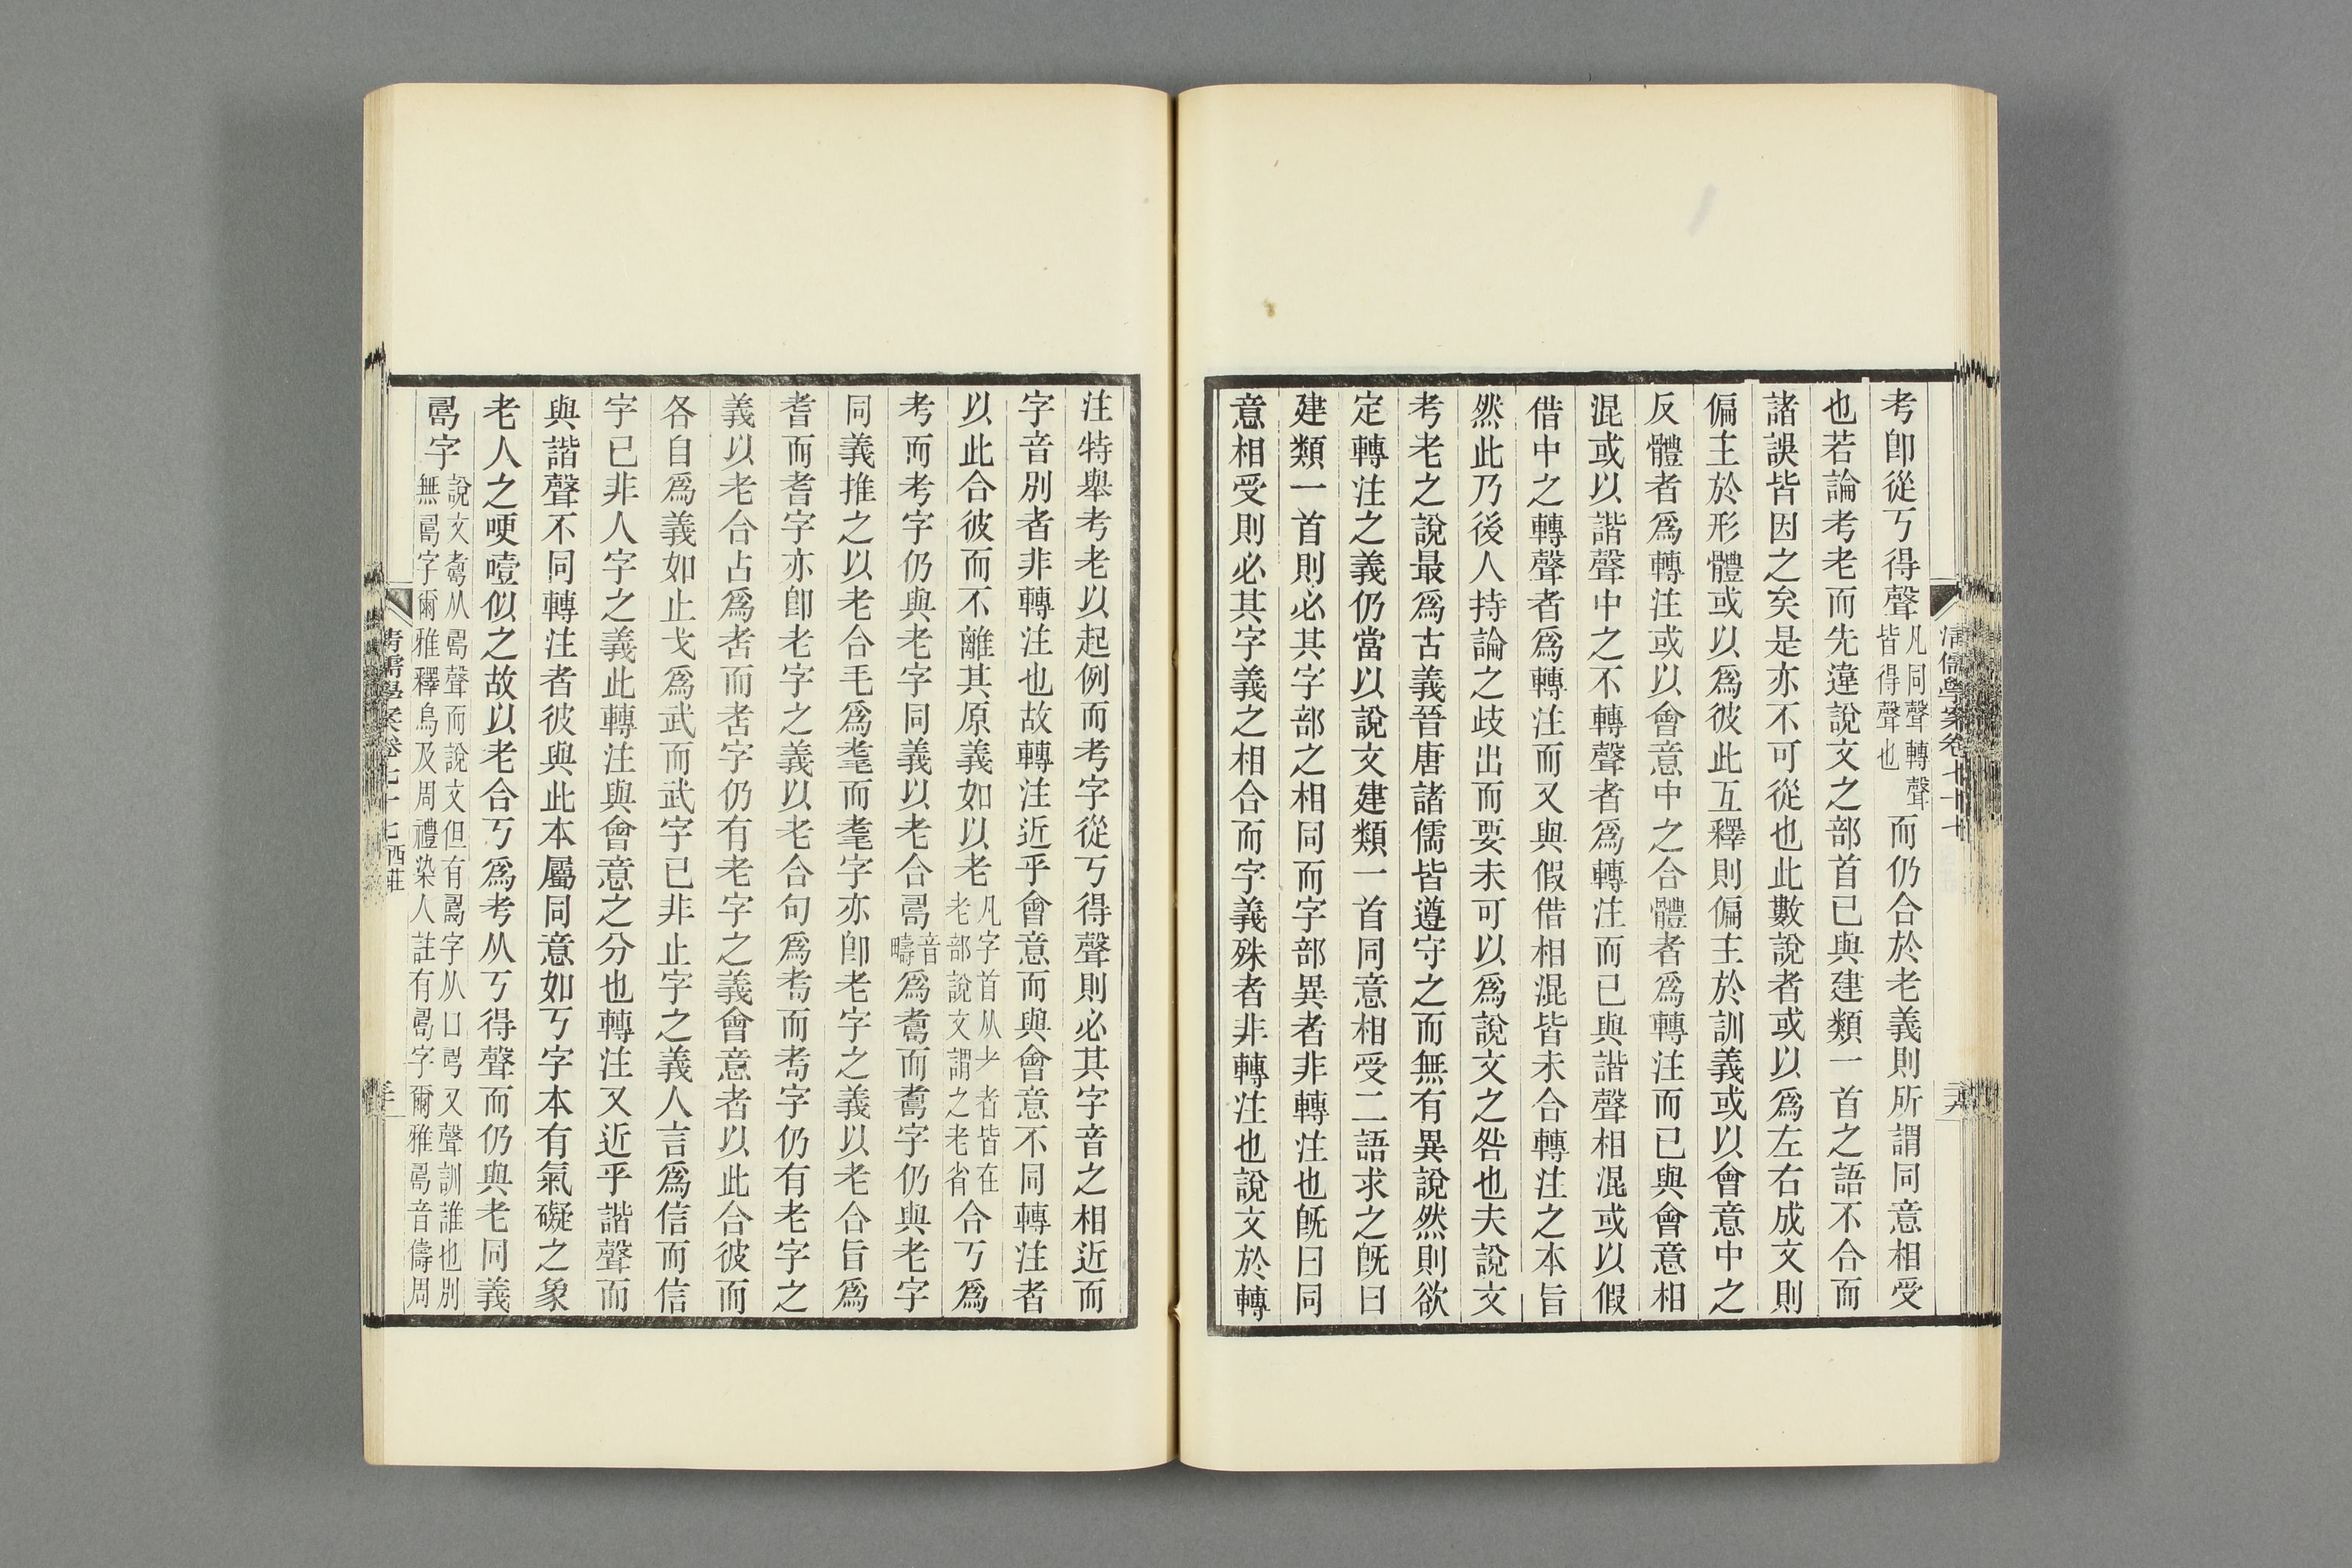 清儒學案卷七十七
考卽從丂得聲凡同聲轉聲皆得聲也而仍合於老義則所謂同意相受
也若論考老而先違說文之部首已與建類一首之語不合而
諸誤皆因之矣是亦不可從也此數說者或以爲左右成文則
偏主於形體或以爲彼此互釋則偏主於訓義或以會意中之
反體者爲轉注或以會意中之合體者爲轉注而已與會意相
混或以諧聲中之不轉聲者爲轉注而已與諧聲相混或以假
借中之轉聲者爲轉注而又與假借相混皆未合轉注之本旨
然此乃後人持論之歧出而要未可以爲說文之咎也夫說文
考老之說最爲古義晉唐諸儒皆遵守之而無有異說然則欲
定轉注之義仍當以說文建類一首同意相受二語求之旣曰
建類一首則必其字部之相同而字部異者非轉注也旣曰同
意相受則必其字義之相合而字義殊者非轉注也說文於轉
注特舉考老以起例而考字從丂得聲則必其字音之相近而
字音別者非轉注也故轉注近乎會意而與會意不同轉注者
以此合彼而不離其原義如以老凡字首从耂者皆在老部說文謂之老省合丂爲
考而考字仍與老字同義以老合㠱音疇爲耋而耋字仍與老字
同義推之以老合毛爲耄而耄字亦卽老字之義以老合旨爲
耆而耆字亦卽老字之義以老合句爲耇而耇字仍有老字之
義以老合占爲者而者字仍有老字之義會意者以此合彼而
各自爲義如止戈爲武而武字已非止字之義人言爲信而信
字已非人字之義此轉注與會意之分也轉注又近乎諧聲而
與諧聲不同轉注者彼與此本屬同意如丂字本有氣礙之象
老人之哽噎似之故以老合丂爲考从丂得聲而仍與老同義
清儒學案卷七十七西莊